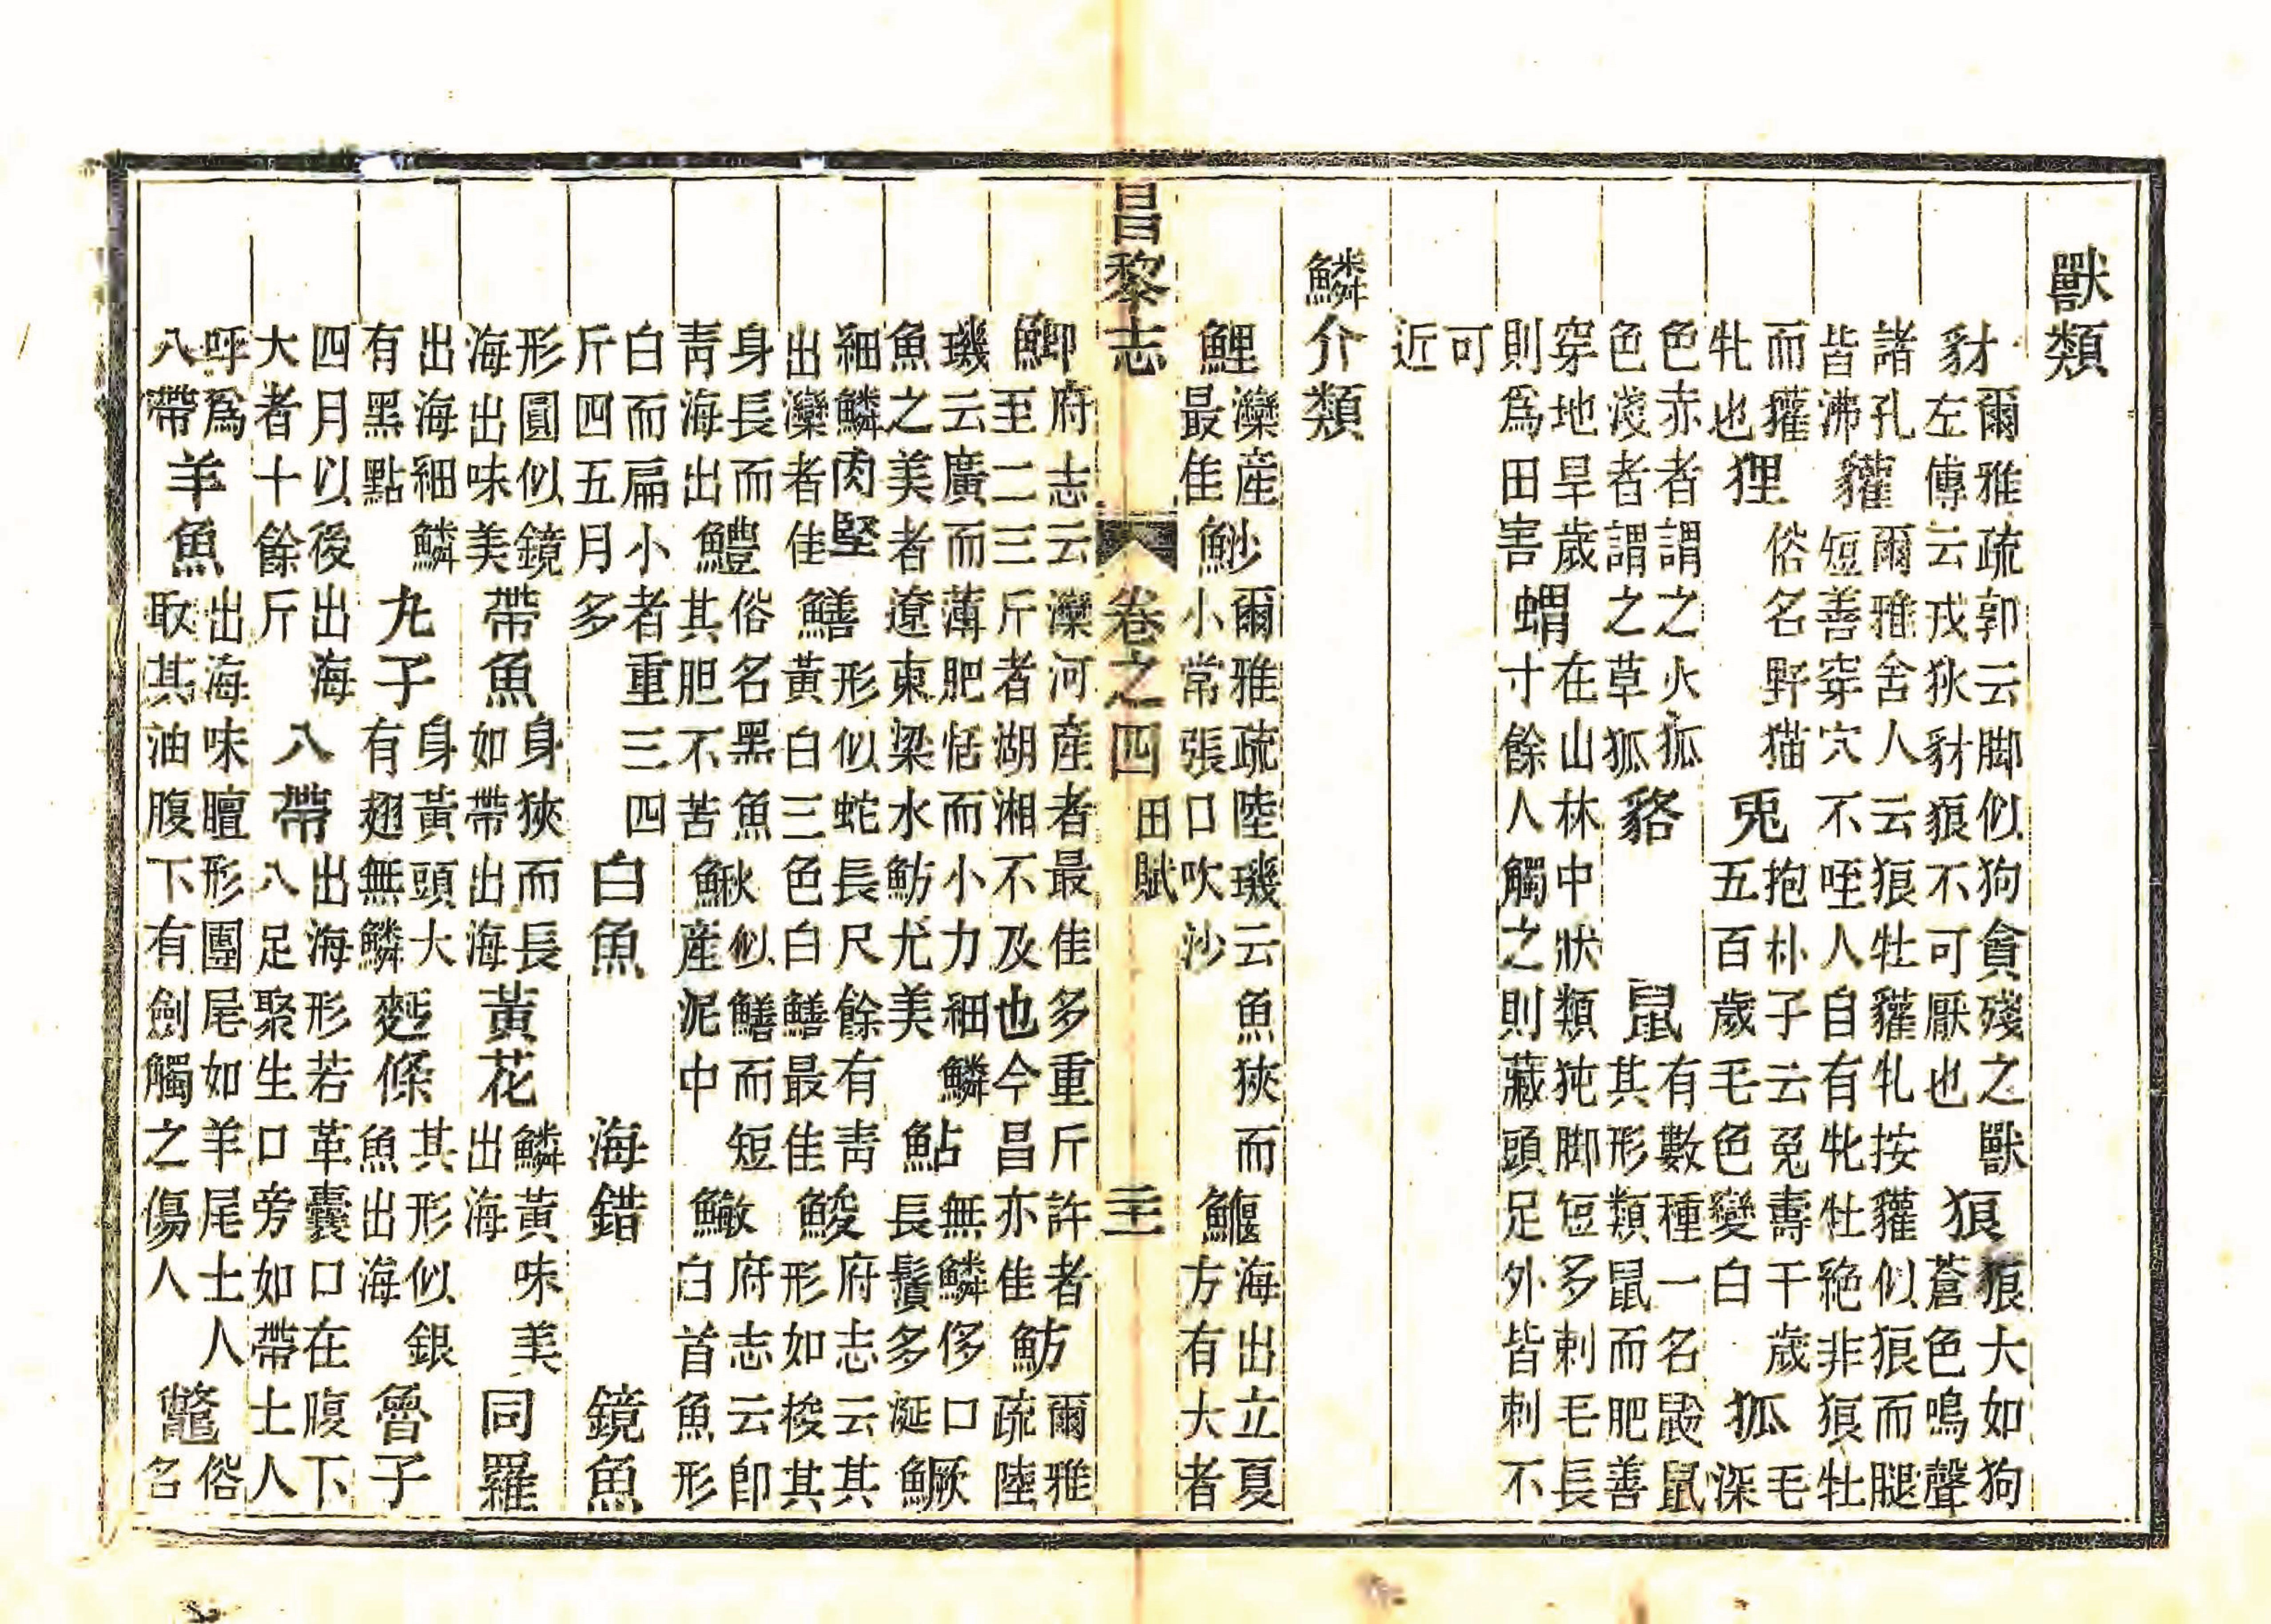 獸類
豺爾雅疏郭云脚似狗貪殘之獸左傳云戎狄豺狼不可厭也狼狼大如狗蒼色鳴聲
諸孔皆沸貛爾雅舍人云狼牡貛牝按貛似狼而腿短善穿穴不咥人自有牝牡絶非狼牡
而貛牝也狸俗名野猫兎抱朴子云兎壽千歲五百歲毛色變白狐毛深
色赤者謂之火狐色淺者謂之草狐貉鼠有數種一名鼢鼠其形類鼠而肥善
穿地旱歲則爲田害蝟在山林中狀類㹠脚短多刺毛長寸餘人觸之則藏頭足外皆刺不
可近
鱗介類
鯉灤産最佳魦爾雅疏陸璣云魚狹而小常張口吹沙鰋海出立夏方有大者
昌黎志 卷之四 田賦
鯽府志云灤河産者最佳多重斤許者至二三斤者湖湘不及也今昌亦佳魴爾雅疏陸
璣云廣而薄肥恬而小力細鱗魚之美者遼東梁水魴尤美鮎無鱗侈口長鬚多涎鱖
細鱗肉堅出灤者佳鱔形似蛇長尺餘有青黃白三色白鱔最佳鮻府志云其形如梭其
身長而青海出鱧俗名黑魚其胆不苦鰍似鱔而短産泥中鰵府志云即白首魚形
白而扁小者重三四斤四五月多白魚海錯鏡魚
形圓似鏡海出味美帶魚身狹而長如帶出海黃花鱗黃味美出海同羅
出海細鱗有黑點九子身黃頭大有翅無鱗麪條其形似銀魚出海魯子
四月以後出海大者十餘斤八帶出海形若革囊口在腹下八足聚生口旁如帶土人
呼爲八帶羊魚出海味膻形團尾如羊尾土人取其油腹下有劍觸之傷人鼈俗名